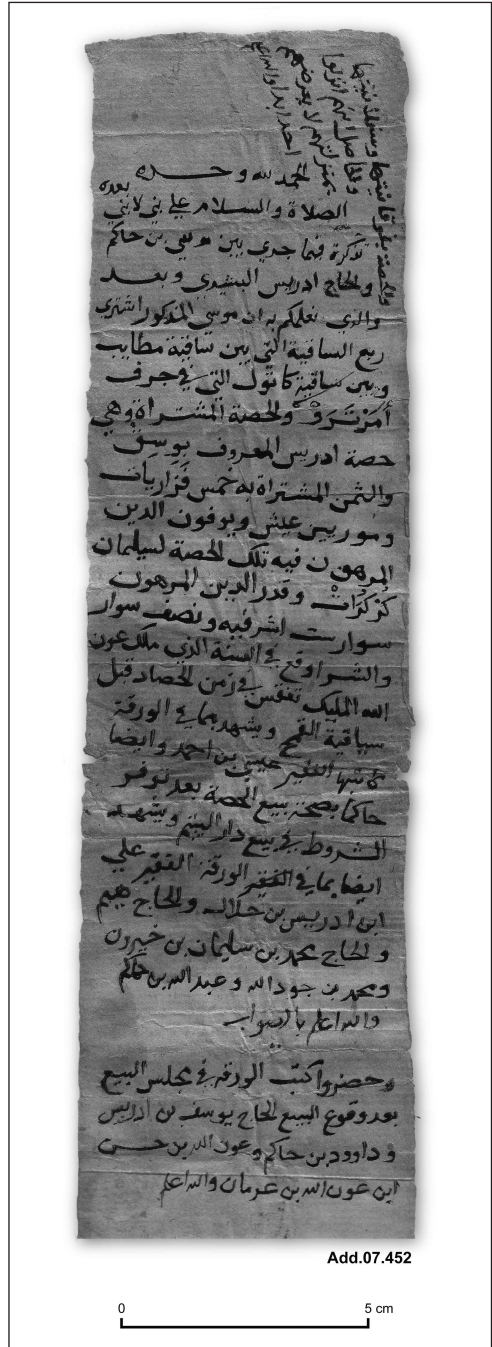 الحمد لله وحده
الصلاة والسلام علي نبي لا نبي بعده
تذكرة فيما جري بين موسي بن حاكم
والحاج ادريس البشيدي وبعد
والذي نعلمكم به ان موسي المذكور اشتري
ربع الساقية التي بين ساقية مطايب
وبين ساقية كاتول التي في جرف
والحصة المشتراة وهي
حصة ادريس المعروف يوسف
والثمن المشتراة به خمس
ويوفون الدين
المرهون فيه تلك الحصة لسيلمان
وقدر الدين المرهون
سوار ست اشرفيه ونصف سوار
والشرا وقع في السنة الذي ملك عون
الله المليك في زمن الحصاد قبل
سياقية القمح ويشهد بما في الورقة
كاتبها الفقير عيسي بن احمد وايضا
حاكما بصحة بيع الحصة بعد توفر
الشروط في بيع دار اليتيم ويشهد
ايضا بما في الورقة الفقير علي
ابن ادريس بن جلال والحاج
والحاج محمد بن سليمان بن خيرون
ومحمد بن جود الله وعبد الله بن حاكم
والله اعلم بالصواب
وحضروا كتب الورقه في مجلس البيع
بعد وقوع البيع الحاج يوسف بن ادريس
وداوود بن حاكم وعون الله بن حسن
ابن عون الله بن عرمان والله اعلم
احد ابدا والله اعلم
Add.07.452
0 5 cm